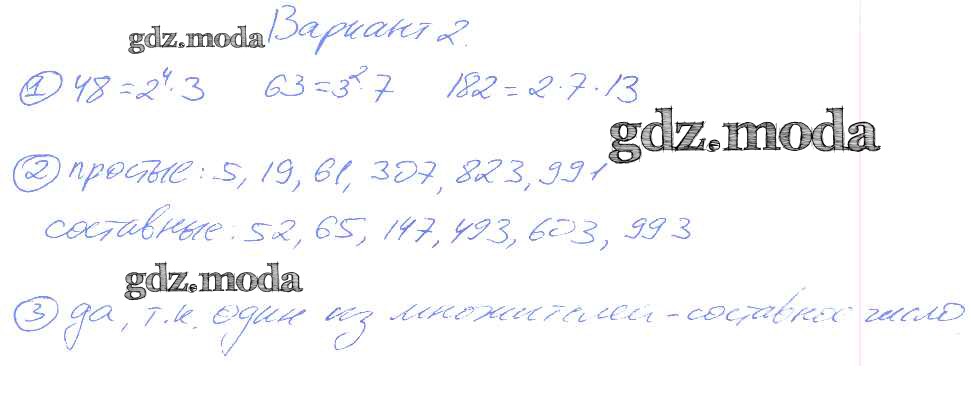 Вариант 2.
gdz.moda
① 48 = 2⁴ · 3   63 = 3² · 7   182 = 2 · 7 · 13
gdz.moda
② простые: 5, 19, 61, 307, 823, 991
составные: 52, 65, 147, 493, 603, 993
gdz.moda
③ да, т.к. один из множителей - составное число